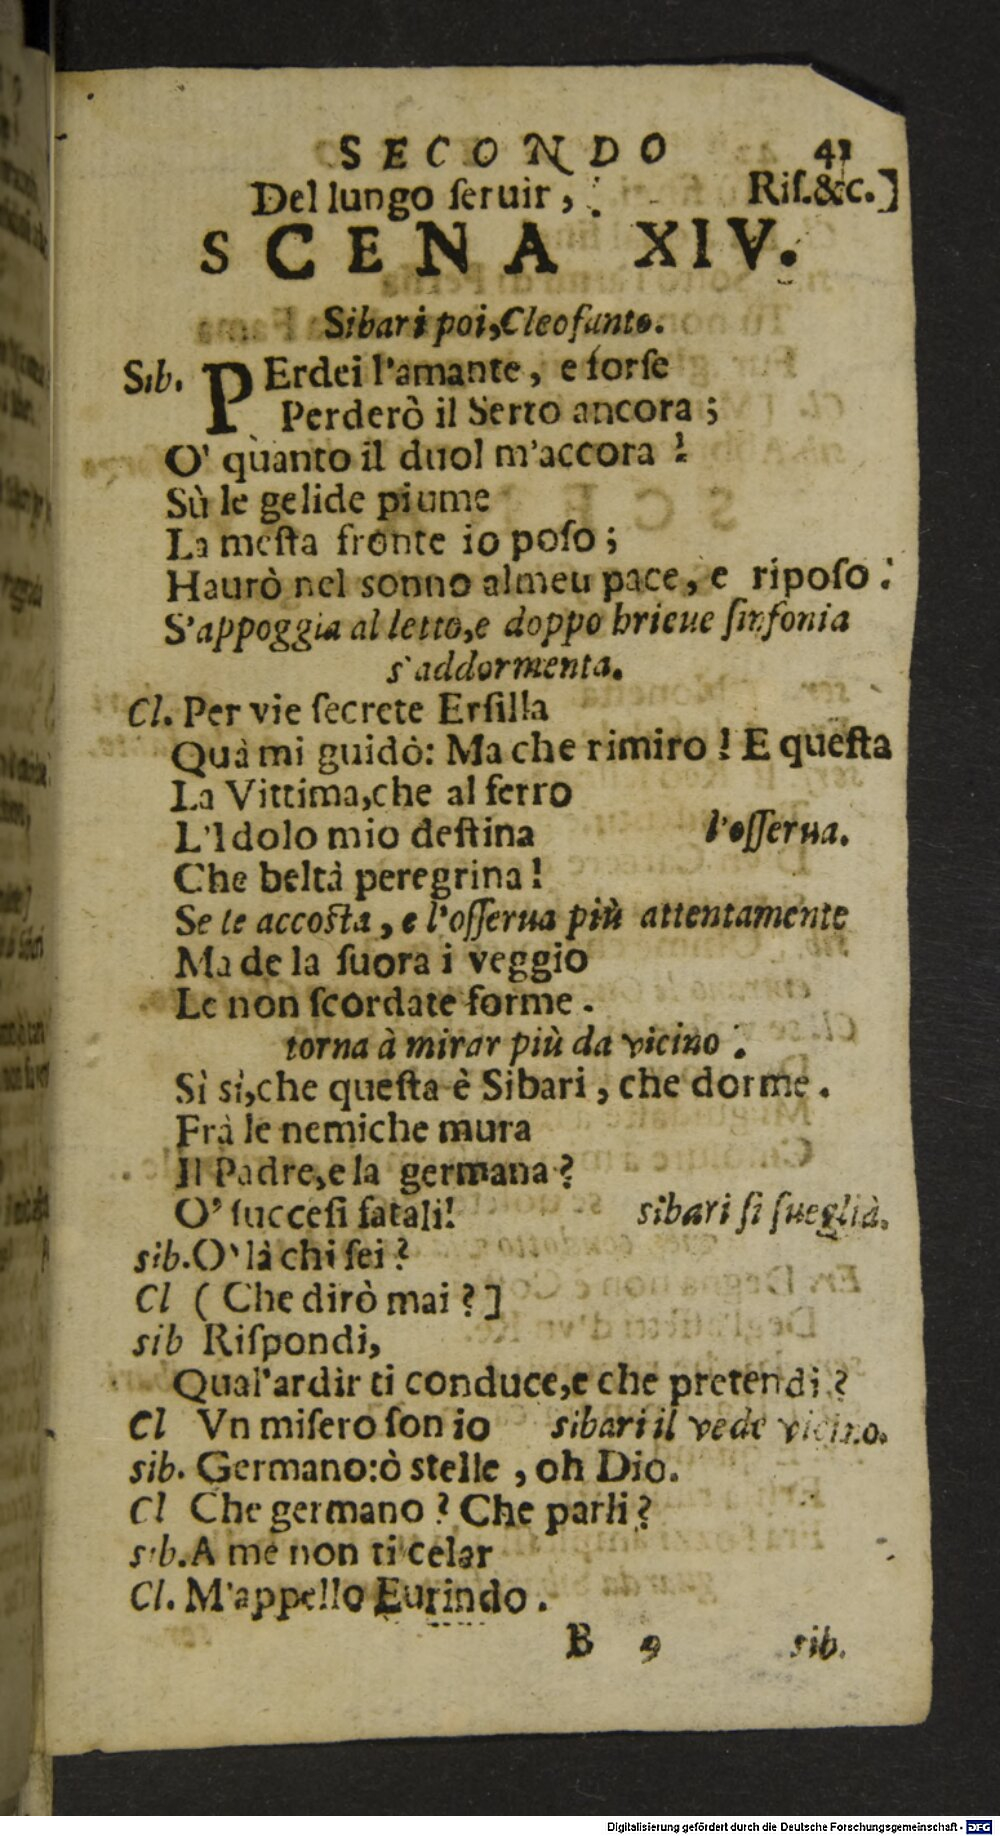 SECONDO 41
Del lungo ſeruir, Riſ.&c.]
SCENA XIV.
Sibari poi,Cleofante.
Sib. PErdei l'amante, e forſe
Perderò il Serto ancora;
O' quanto il duol m'accora!
Sù le gelide piume
La meſta fronte io poſo;
Haurò nel sonno almeu pace, e ripoſo.
S'appoggia al letto,e doppo brieue ſinfonia
s'addormenta.
Cl. Per vie ſecrete Erſilla
Quà mi guidò: Ma che rimiro! E queſta
La Vittima,che al ferro
L'Idolo mio deſtina l'oſſerua.
Che beltà peregrina!
Se le accoſta, e l'oſſerua più attentamente
Ma de la ſuora i veggio
Le non ſcordate forme.
torna à mirar più da vicino.
Sì sì,che queſta è Sibari, che dorme.
Frà le nemiche mura
Il Padre,e la germana?
O' ſucceſi fatali! sibari ſi ſueglià.
sib.O'là chi ſei?
Cl (Che dirò mai?]
sib Riſpondi,
Qual'ardir ti conduce,e che pretendi?
Cl Vn miſero ſon io sibari il vede vicino.
sib. Germano:ò stelle, oh Dio.
Cl Che germano? Che parli?
sib.A me non ti celar
Cl. M'appello Eurindo.
B 9 sib.
Digitalisierung gefördert durch die Deutsche Forschungsgemeinschaft - DFG